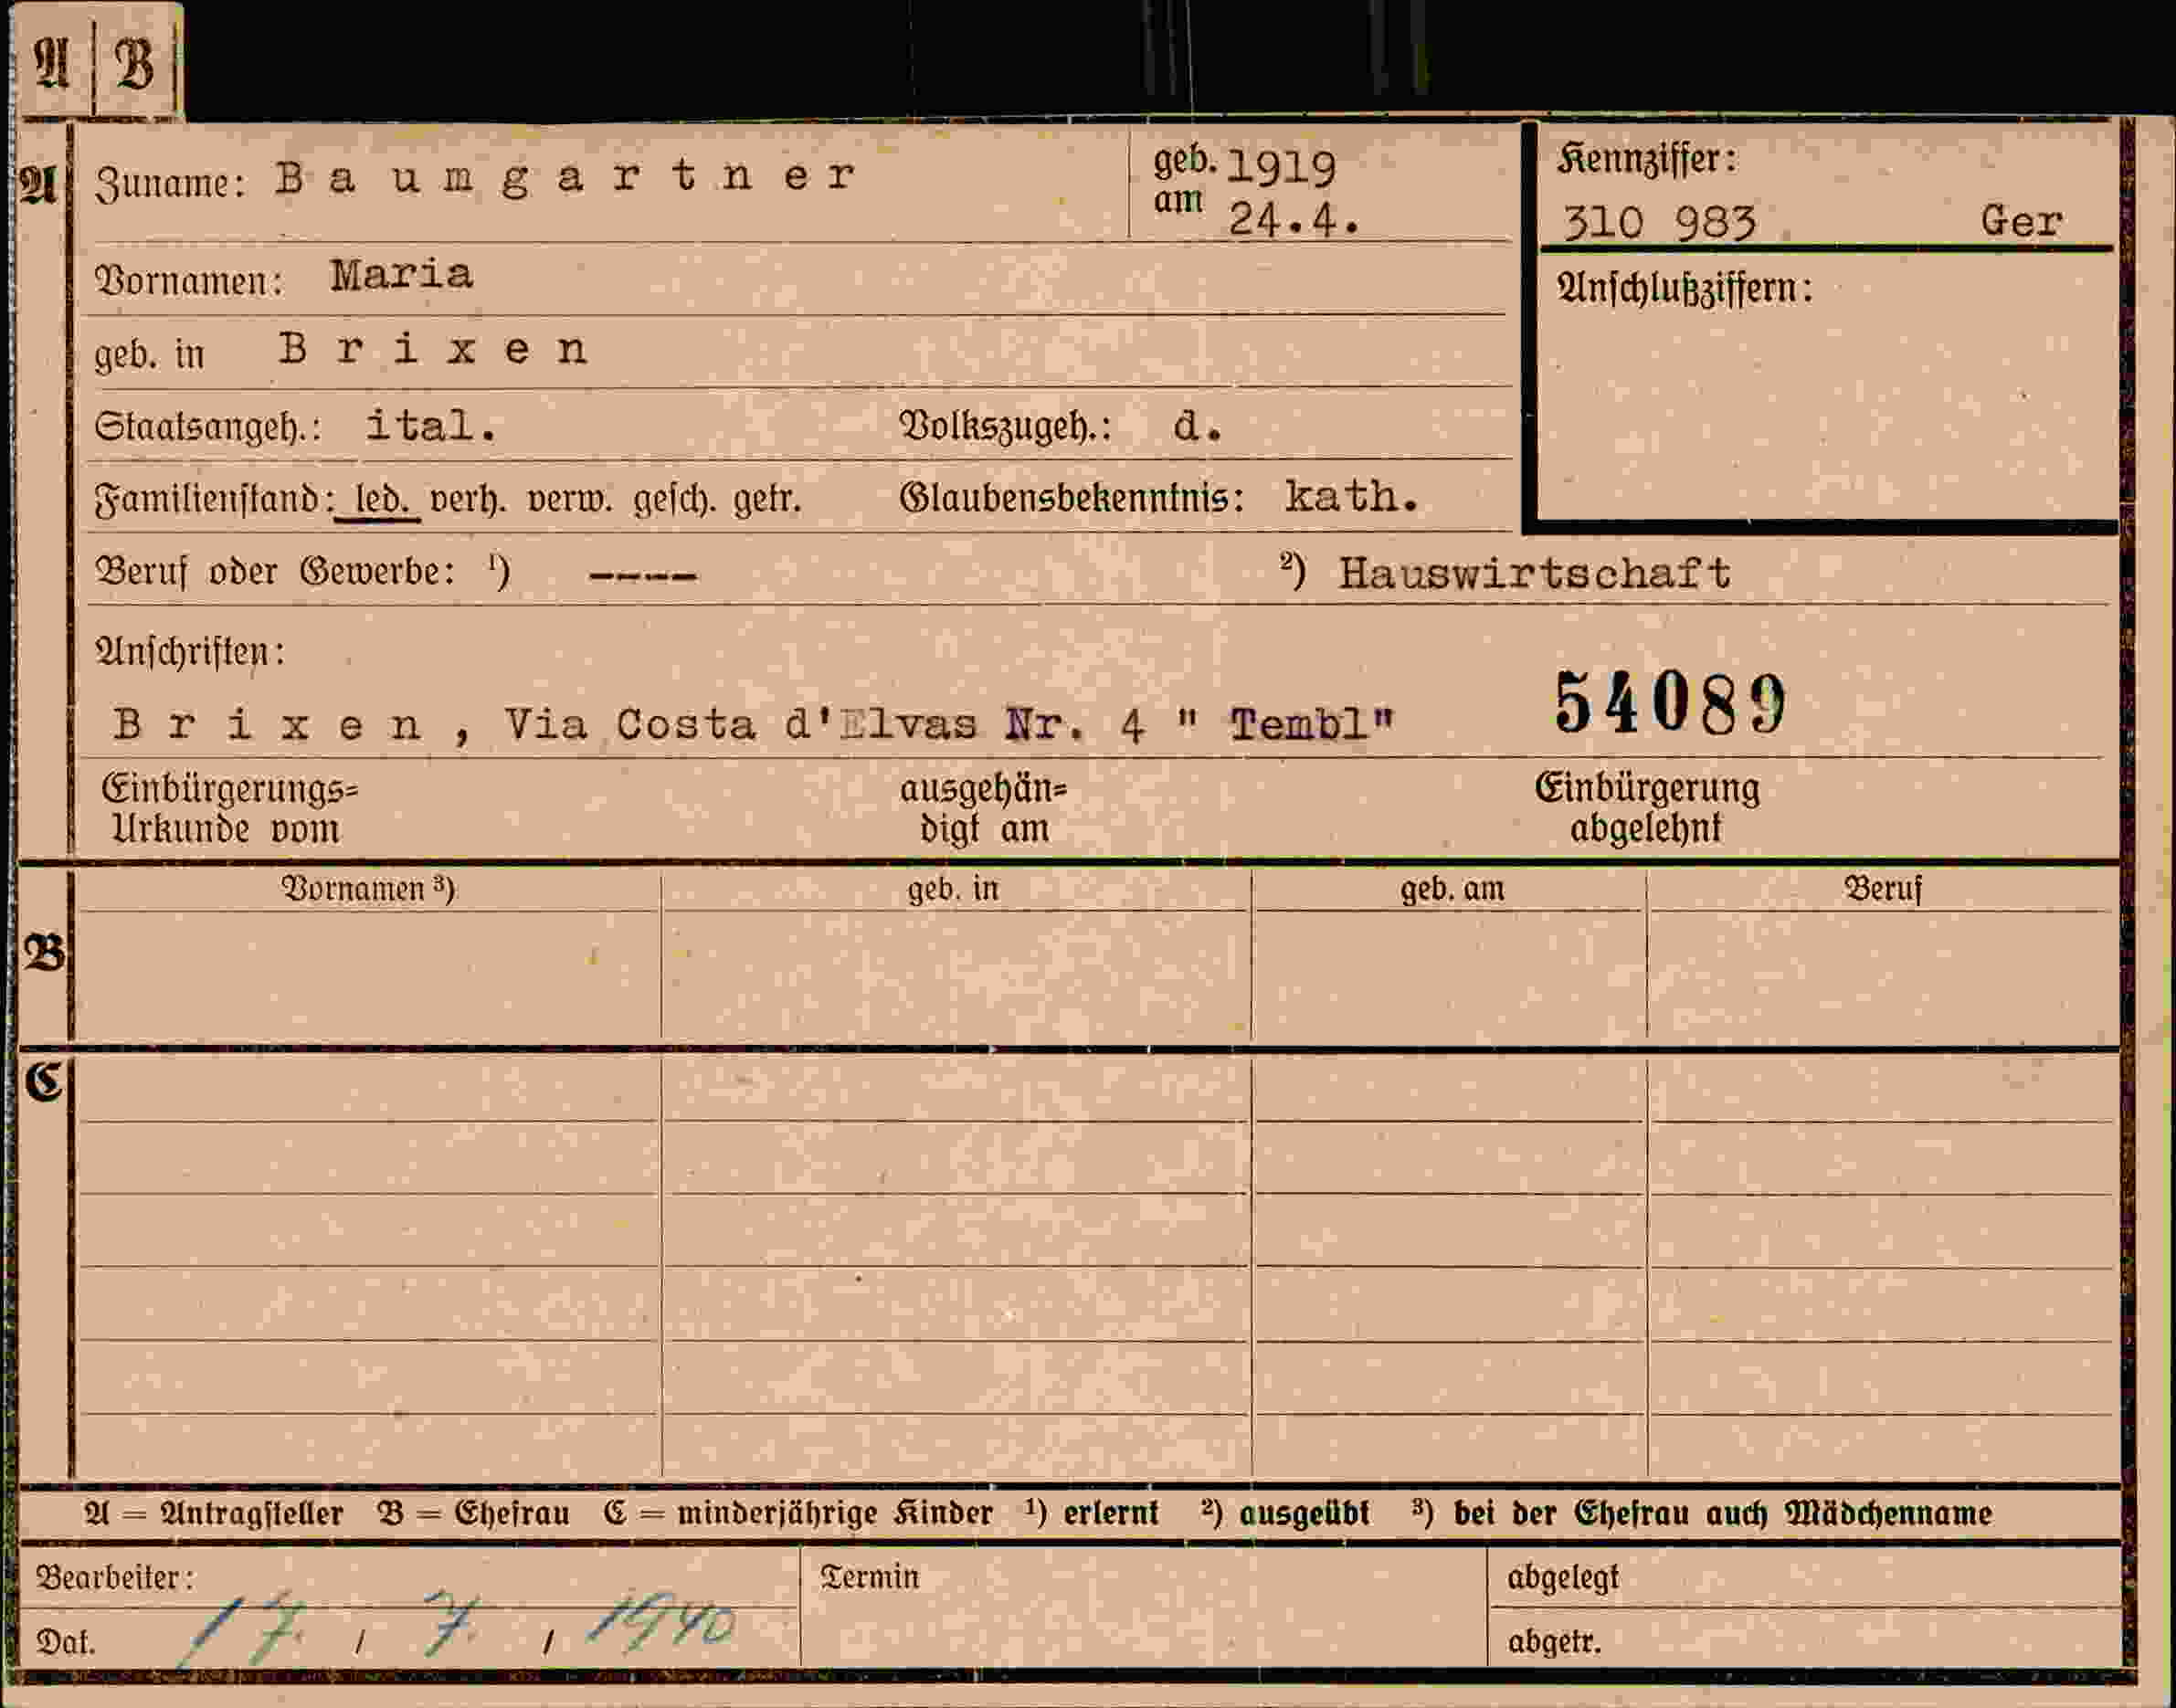 A | B
A Zuname: B a u m g a r t n e r geb. am 1919 24.4. Kennziffer:
310 983 Ger
Vornamen: Maria Anschlußziffern:
geb. in B r i x e n
Staatsangeh.: ital. Volkszugeh.: d.
Familienstand: led. verh. verw. gesch. getr. Glaubensbekenntnis: kath.
Beruf oder Gewerbe: ¹) ---- ²) Hauswirtschaft
Anschriften:
B r i x e n , Via Costa d'Elvas Nr. 4 " Tembl" 54089
Einbürgerungs= ausgehän= Einbürgerung
Urkunde vom digt am abgelehnt
Vornamen ³) geb. in geb. am Beruf
B
C
A = Antragsteller B = Ehefrau C = minderjährige Kinder ¹) erlernt ²) ausgeübt ³) bei der Ehefrau auch Mädchenname
Bearbeiter: Termin abgelegt
Dat. 17. / 7. / 1940 abgetr.